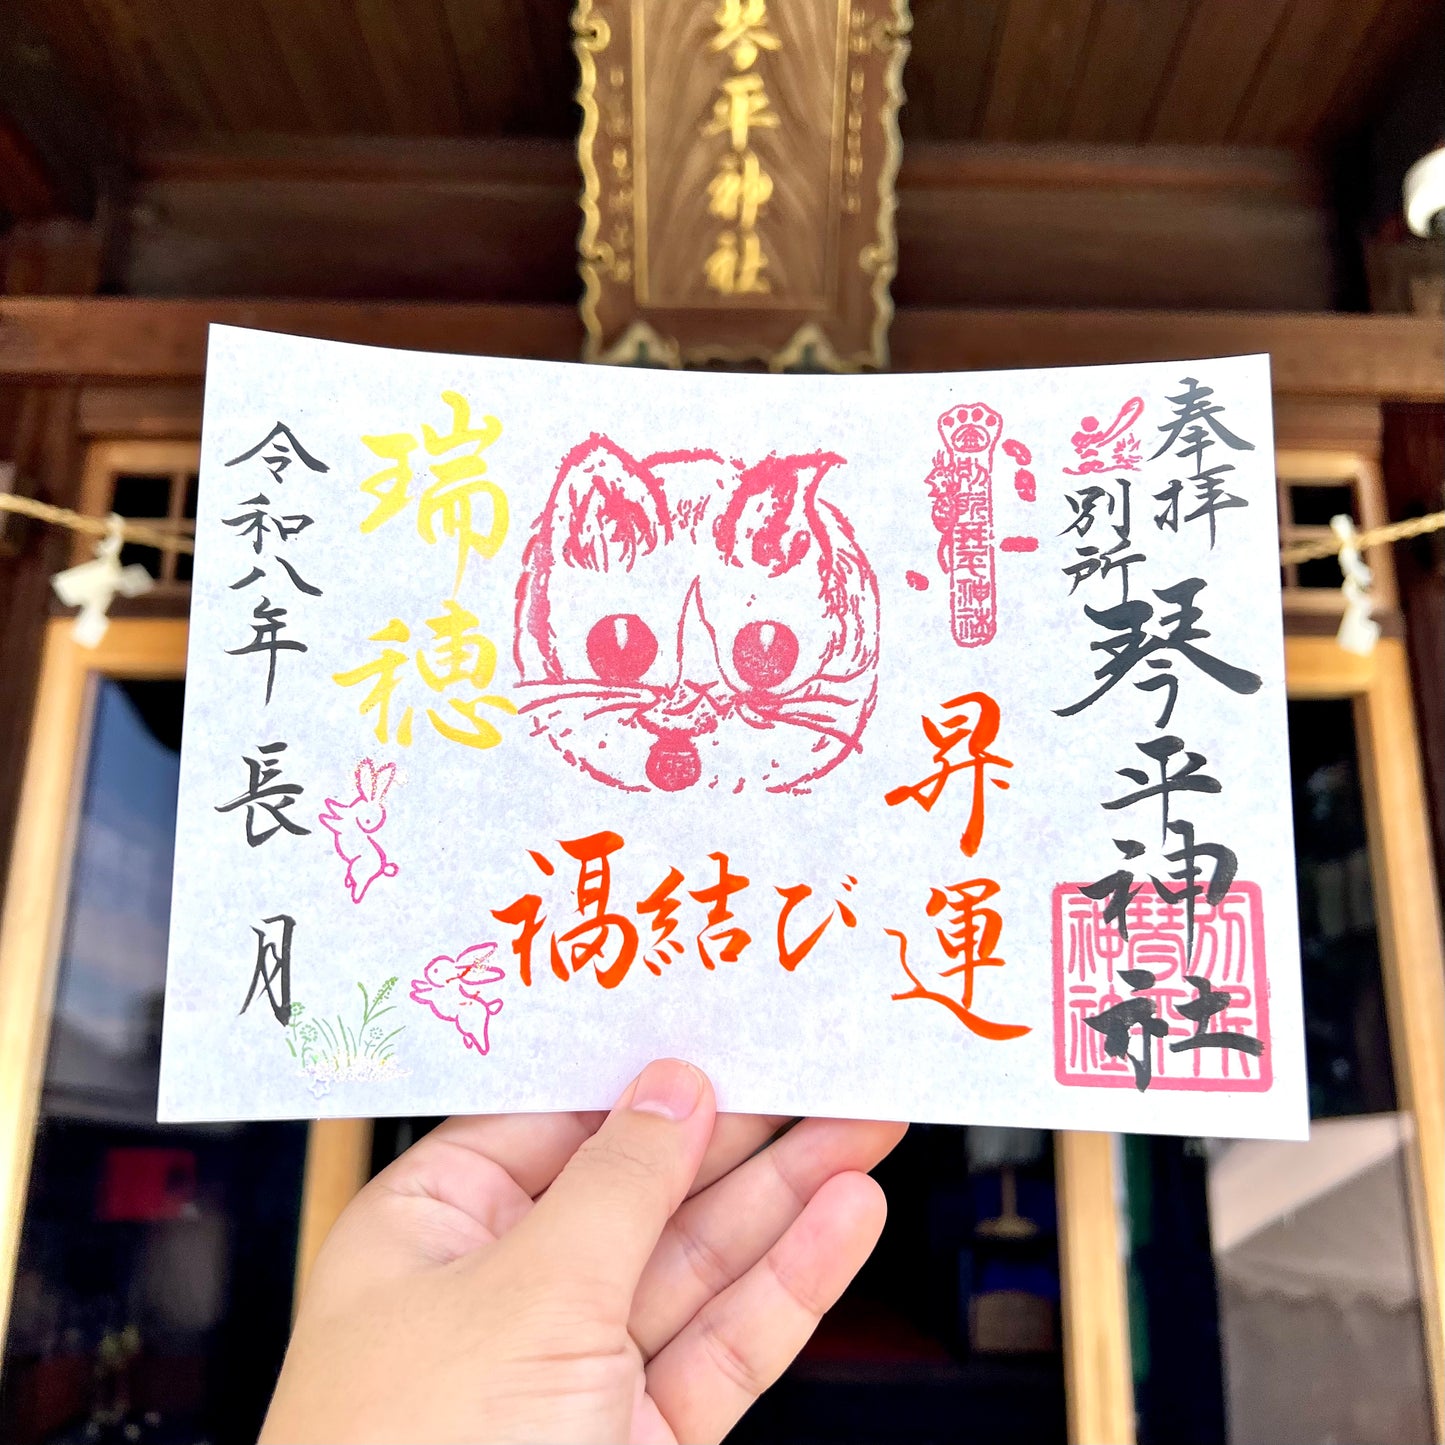 琴平神社
奉拝
別所
琴平神社
昇運
福結び
瑞穂
令和八年
長月
金
別所琴平神社